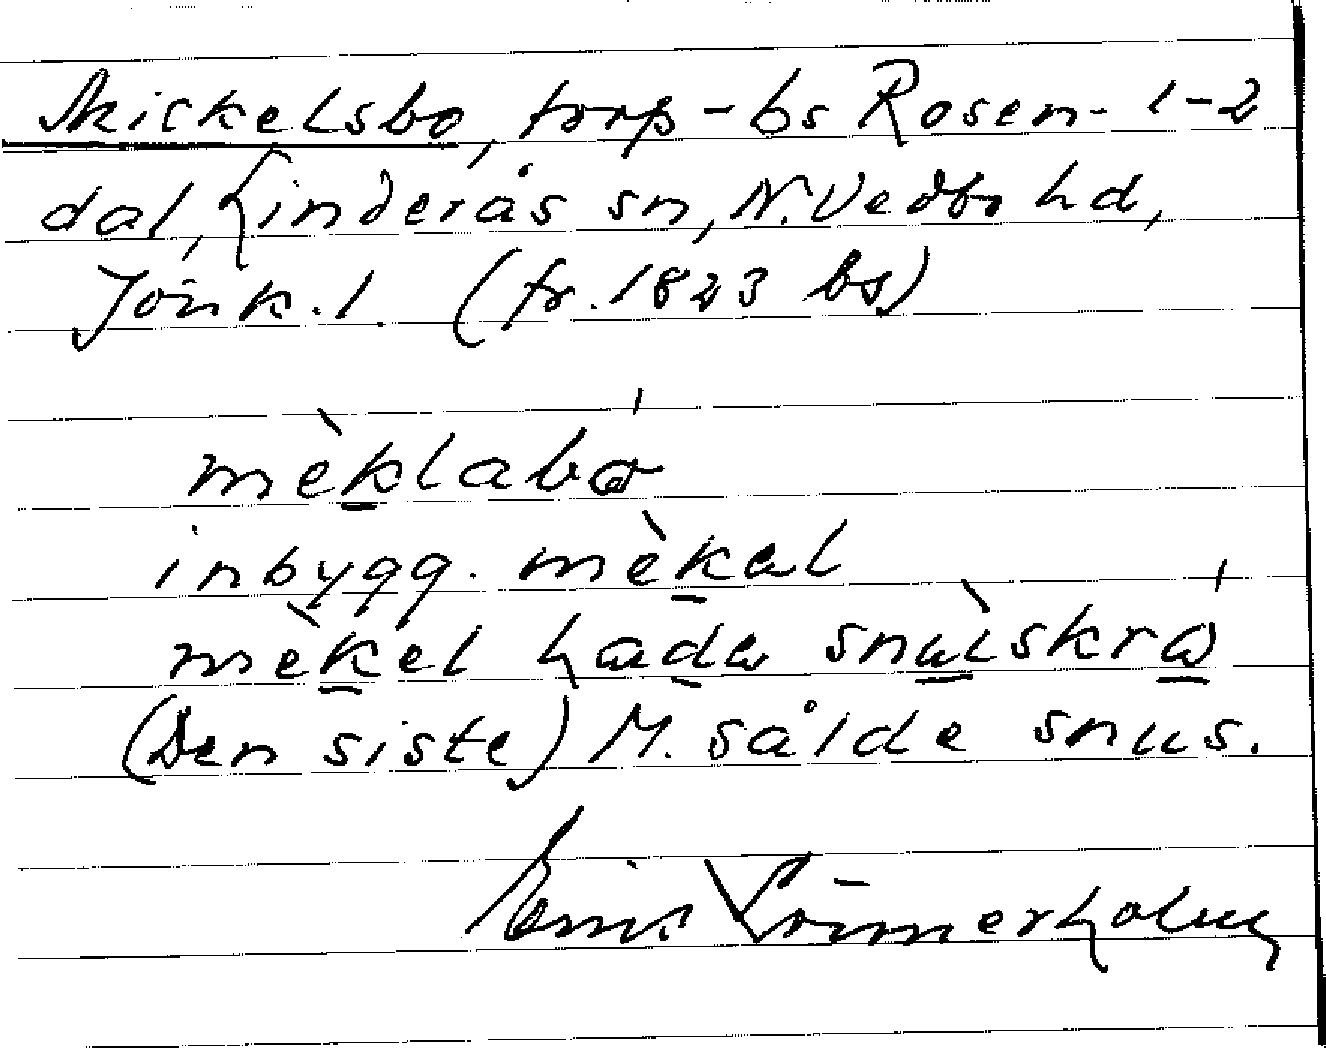 Mickelsbo, torp-bs Rosen- 1-2
dal, Linderås sn, N. Vedbo hd,
Jönk. l. (fr. 1823 bs)
mèklabó
inbygg. mèkal
mèkel hada snùlskrá
(Den siste) M. sålde snus.